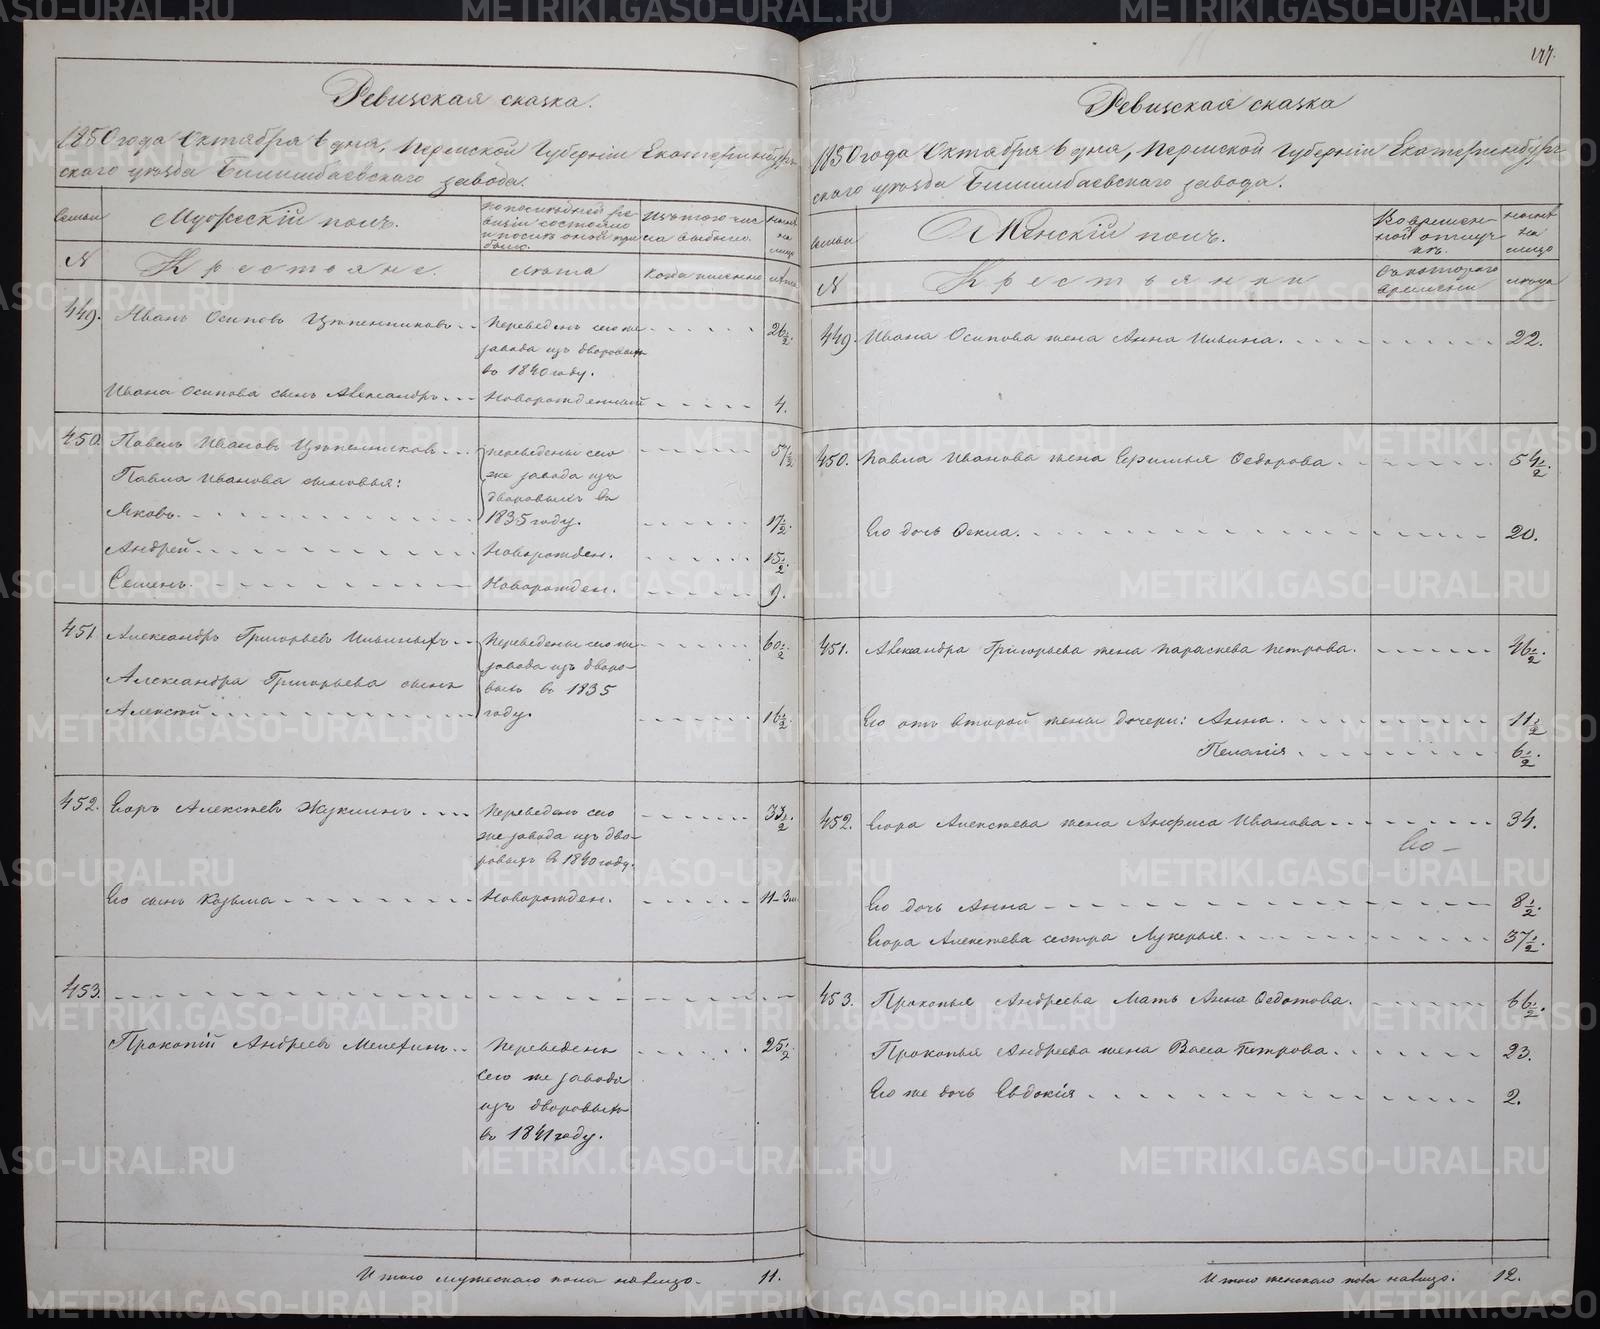 Ревизская сказка.
1850 года Октября 6 дня, Пермской Губерніи Екатеринбург-
скаго уѣзда Билимбаевскаго завода.
Семьи
Мужескій полъ.
По последней ре-
визіи состояло
и послѣ оной при
было.
Изъ того чис
ла выбыло.
Нынѣ
на
лицо
N
Крестьяне.
Лѣта
Когда именно
Лѣта
449. Иванъ Осиповъ Цѣпенниковъ Переведенъ сего же 26 1/2.
завода изъ дворовыхъ
въ 1840 году.
Ивана Осипова сынъ Александръ Новорожденный 4.
450. Павелъ Ивановъ Цѣпенниковъ переведены сего 57 1/2
Павла Иванова сыновья: же завода изъ
дворовыхъ въ
Яковъ 1835 году. 17 1/2.
Андрей Новорожден. 15 1/2.
Семенъ Новорожден. 9.
451 Александръ Григорьевъ Ильиныхъ Переведены сего же 60 1/2
завода изъ дворо-
Александра Григорьева сынъ выхъ въ 1835
Алексѣй году. 16 1/2.
452. Егоръ Алексѣевъ Жуклинъ Переведенъ сего 33 1/2.
же завода изъ дво-
ровыхъ въ 1840 году.
Его сынъ Козьма Новорожден. 11-3 м.
453.
Прокопій Андреевъ Переведенъ 25 1/2.
сего же завода
изъ дворовыхъ
въ 1841 году.
Итого мужескаго пола налицо. 11.
177.
Ревизская сказка
1850 года Октября 6 дня, Пермской Губерніи Екатеринбург-
скаго уѣзда Билимбаевскаго завода.
Семьи
Женскій полъ.
Во времен-
ной отлуч
кѣ.
Нынѣ
на
лицо
N
Крестьянки
Съ котораго
времени
лѣта
449. Ивана Осипова жена Анна Ильина. 22.
450. Павла Иванова жена Едорова 54 1/2.
Его дочь Фекла. 20.
451. Александра Григорьева жена Параскева Петрова. 46 1/2.
Его отъ второй жены дочери: Анна. 11 1/2
Пелагія 6 1/2.
452. Егора Алексѣева жена Анфиса Иванова 34.
Его -
Его дочь Анна 8 1/2.
Егора Алексѣева сестра Лукерья. 37 1/2.
453. Прокопья Андреева Мать Анна Федотова. 66 1/2.
Прокопья Андреева жена Васса Петрова. 23.
Его же дочь Евдокія 2.
Итого женскаго пола налицо. 12.
METRIKI.GASO-URAL.RU